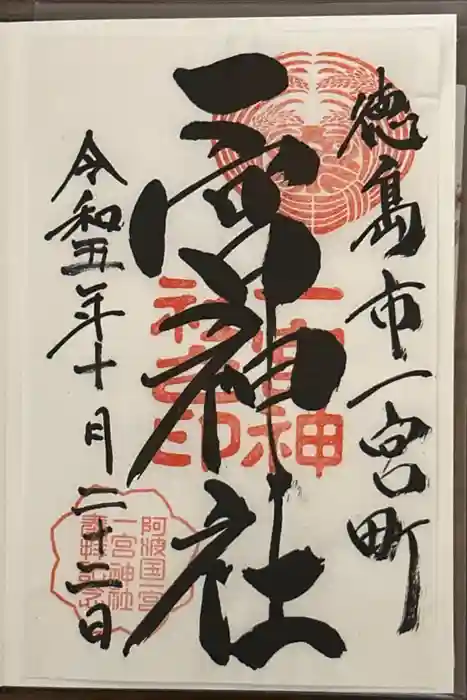 徳島市一宮町
一宮神社
令和五年十月二十二日
一宮神
社之印
阿波国一宮
一宮神社